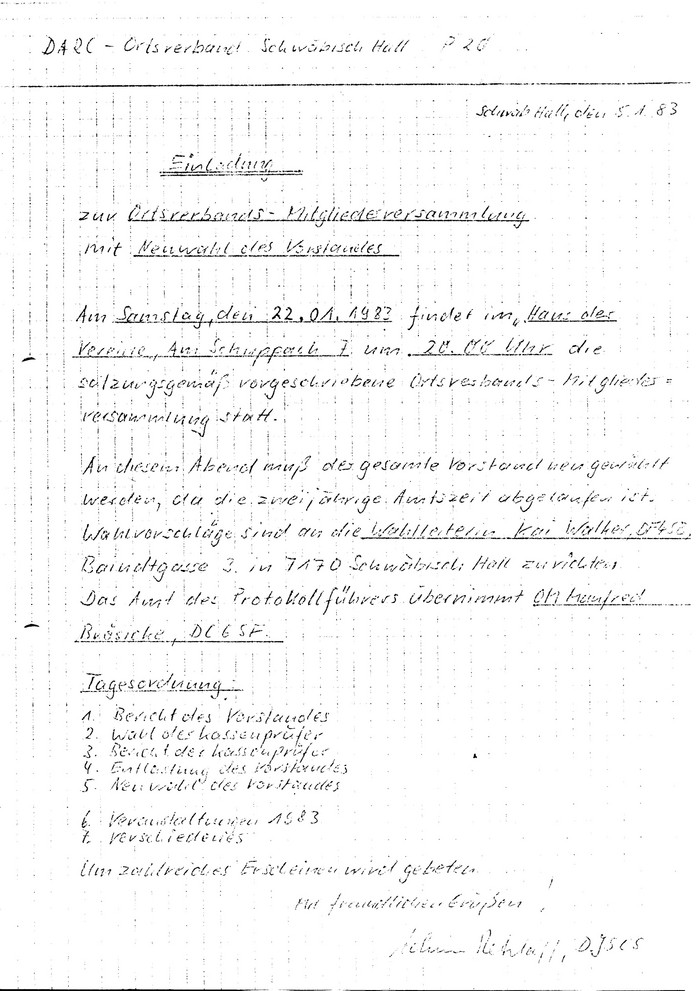 DARC - Ortsverband Schwäbisch Hall P 20
Schwäb Hall, den 5.1.83
Einladung
zur Ortsverbands-Mitgliederversammlung
mit Neuwahl des Vorstandes
Am Samstag, den 22.01.1983 findet im „Haus der
Vereine, Am Schuppach 7 um 20.00 Uhr die
satzungsgemäß vorgeschriebene Ortsverbands-Mitglieder=
versammlung statt.
An diesem Abend muß der gesamte Vorstand neu gewählt
werden, da die zweijährige Amtszeit abgelaufen ist.
Wahlvorschläge sind an die Wahlleiterin Kai Walter,
Baindtgasse 3 in 7170 Schwäbisch Hall zu richten
Das Amt des Protokollführers übernimmt OM Manfred
Bräsicke, DC6SF.
Tagesordnung:
1. Bericht des Vorstandes
2. Wahl der Kassenprüfer
3. Bericht der Kassenprüfer
4. Entlastung des Vorstandes
5. Neuwahl des Vorstandes
6. Veranstaltungen 1983
7. Verschiedenes
Um zahlreiches Erscheinen wird gebeten
Mit freundlichen Grüßen !